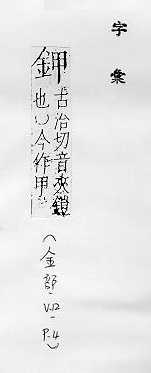 字彙
鉀 古洽切音夾鎧
也〇今作甲
(金部-V.12-P.4)